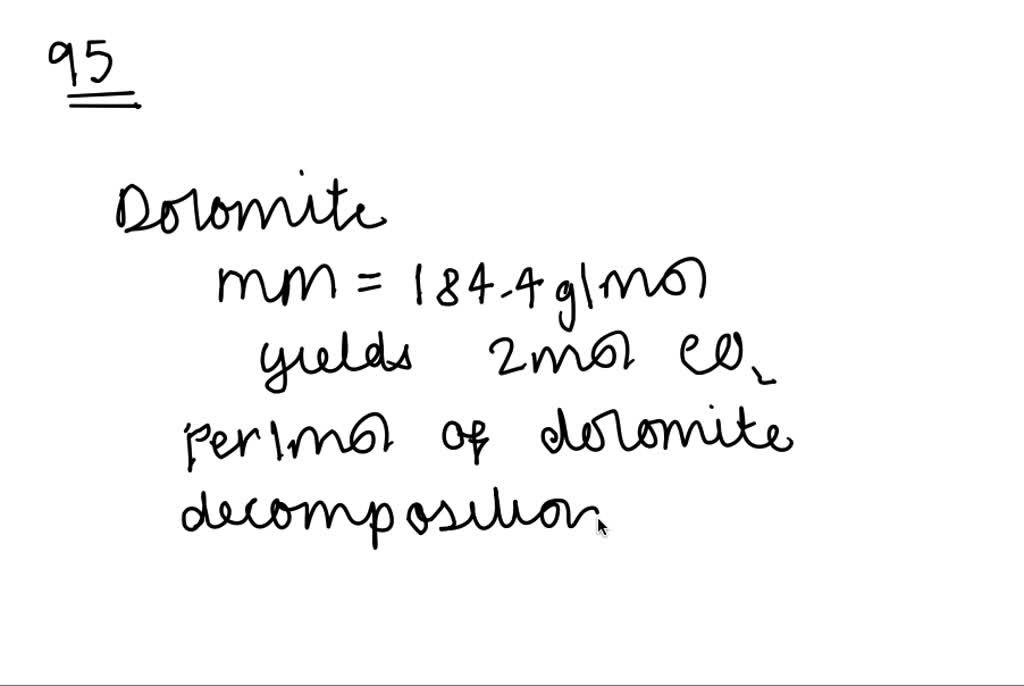 95
Dolomite
mm = 184.4 g/mol
yields 2mol CO₂
per 1mol of dolomite
decomposition